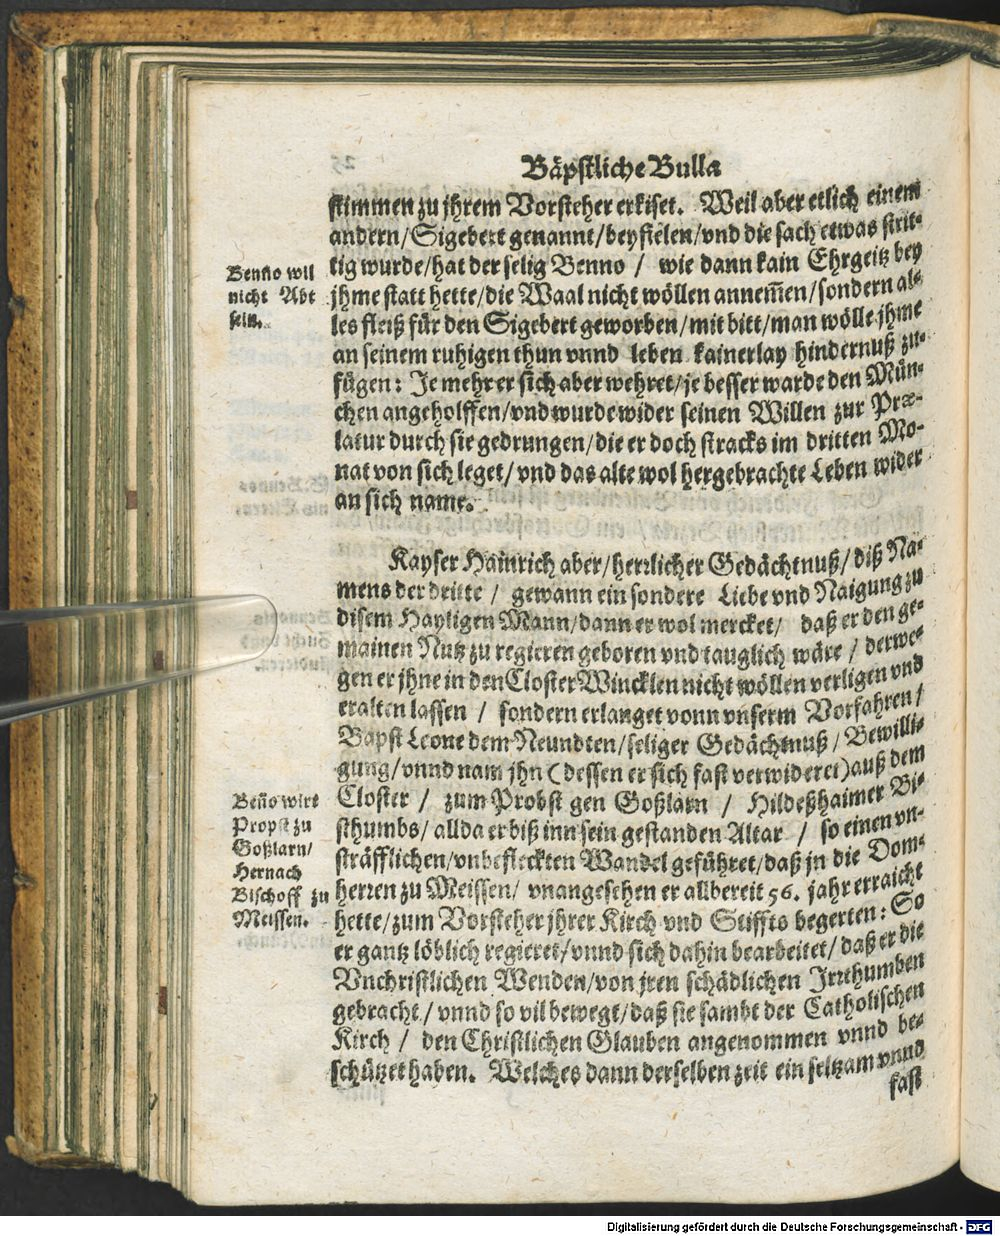 Bäpstliche Bulla
stimmen zu jhrem Vorsteher erkiset. Weil aber etlich einem
andern/Sigebert genannt/beyfielen/vnd die sach etwas strit-
tig wurde/hat der selig Benno / wie dann kain Ehrgeitz bey
jhme statt hette/die Waal nicht wöllen annem̃en/sondern al-
les fleiß für den Sigebert geworben/mit bitt/man wölle jhme
an seinem ruhigen thun vnnd leben kainerlay hindernuß zu-
fügen: Je mehr er sich aber wehret/je besser warde den Mün-
chen angeholffen/vnd wurde wider seinen Willen zur Præ-
latur durch sie gedrungen/die er doch stracks im dritten Mo-
nat von sich leget/vnd das alte wol hergebrachte Leben wider
an sich name.
Beño wil
nicht Abt
sein.
Kayser Hainrich aber/herrlicher Gedächtnuß/diß Na-
mens der dritte / gewann ein sondere Liebe vnd Naigung zu
disem Hayligen Mann/dann er wol mercket/ daß er den ge-
mainen Nutz zu regieren geboren vnd tauglich wäre / derwe-
gen er jhne in den Closter Wincklen nicht wöllen verligen vnd
eralten lassen / sondern erlanget vonn vnserm Vorfahren/
Bapst Leone dem Neundten/seliger Gedächtnuß/Bewilli-
gung/vnnd nam jhn (dessen er sich fast verwideret) auß dem
Closter / zum Probst gen Goßlarn / Hildeßhaimer Bi-
sthumbs/allda er biß inn sein gestanden Altar / so einen vn-
sträfflichen/vnbefleckten Wandel geführet/daß jn die Dom-
herren zu Meissen/ vnangesehen er allbereit 56. jahr erraicht
hette/zum Vorsteher jhrer Kirch vnd Stiffts begerten: So
er gantz löblich regieret/vnnd sich dahin bearbeitet/daß er die
Vnchristlichen Wenden/von jren schädlichen Irrthumben
gebracht/vnnd so vil bewegt/daß sie sambt der Catholischen
Kirch / den Christlichen Glauben angenommen vnnd be-
schützet haben. Welches dann derselben zeit ein seltzam vnnd
Beño wirt
Propst zu
Goßlarn/
Hernach
Bischoff zu
Meissen.
fast
Digitalisierung gefördert durch die Deutsche Forschungsgemeinschaft - DFG